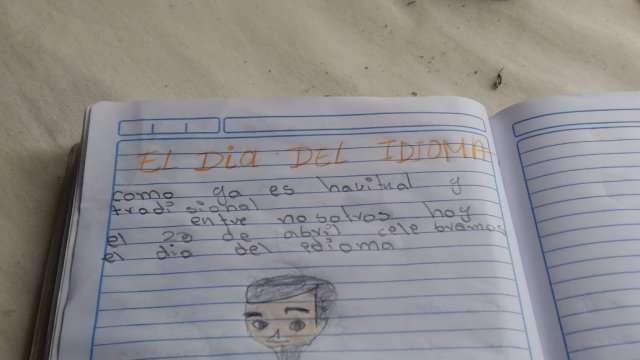 EL DIA DEL IDIOMA
como ya es havitual y
tradisional
entre nosotros hoy
el 23 de abril celebramos
el dia del edioma